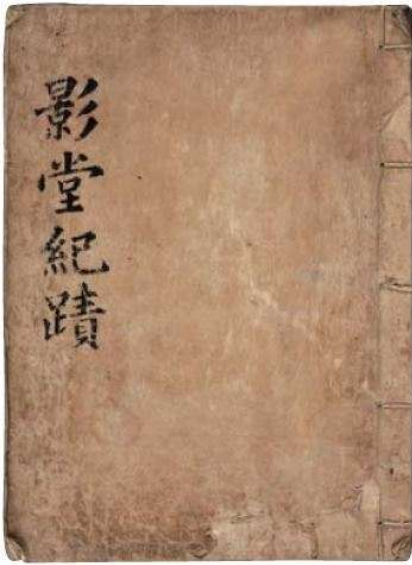 影堂紀蹟